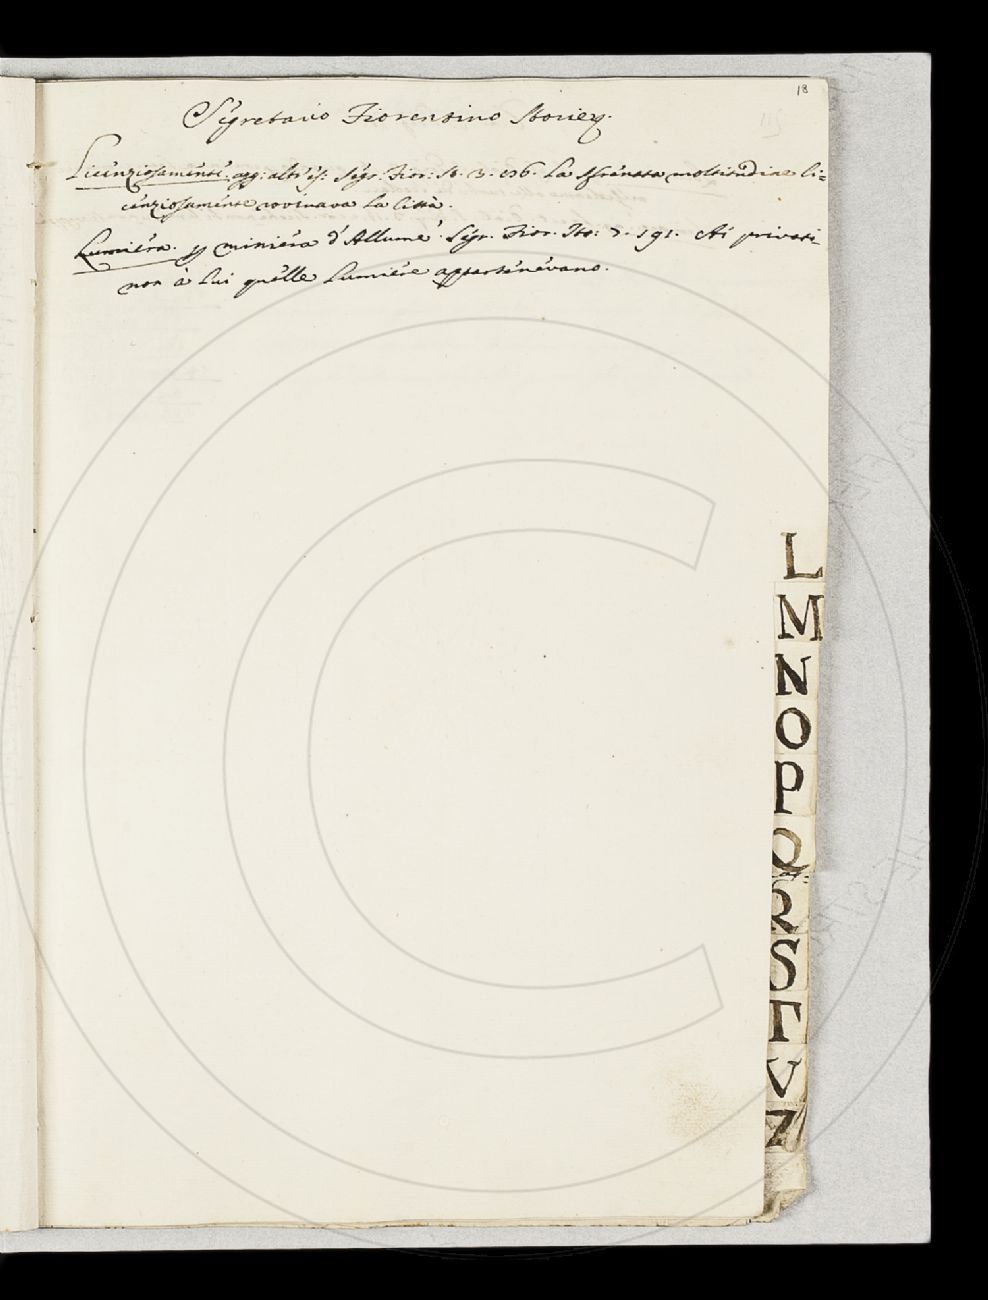 18
Segretario Fiorentino Storie
Licenziosamente. agg: altr' es: Segr. Fior: St. 3. La sfrenata moltitudine li=
cenziosamente rovinava la Città.
Lumiéra. p miniéra d'Allume. Segr. Fior. Sto: 7. 191. Ai privati
non à lui quelle Lumiére appartenévano.
L
M
N
O
P
Q
R
S
T
V
Z